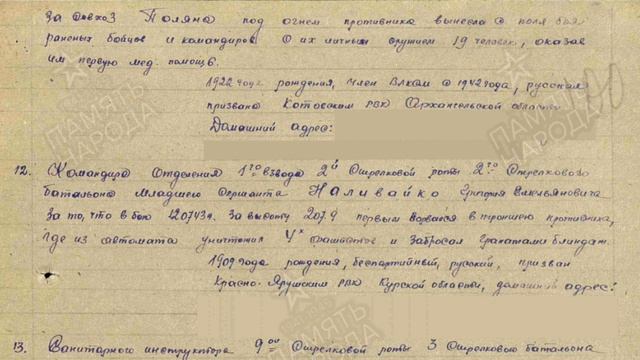 за совхоз Поляна под огнем противника вынесла с поля боя
раненых бойцов и командиров с их личным оружием 19 человек, оказав
им первую мед. помощь.
1922 года рождения, член ВЛКСМ с 1942 года, русская
призвана Котовским РВК Архангельской области
Домашний адрес:
12. Командира отделения 1го взвода 2й Стрелковой роты 2го Стрелкового
батальона младшего сержанта Наливайко Григория Емельяновича
За то, что в бою 22.07.43г. за высоту 207.9 первым ворвался в траншею противника,
где из автомата уничтожил 4х фашистов и забросал гранатами блиндаж.
1909 года рождения, беспартийный, русский, призван
Красно-Яружским РВК Курской области, домашний адрес:
13. Санитарного инструктора 9ой Стрелковой роты 3 Стрелкового батальона
ПАМЯТЬ НАРОДА
ПАМЯТЬ НАРОДА